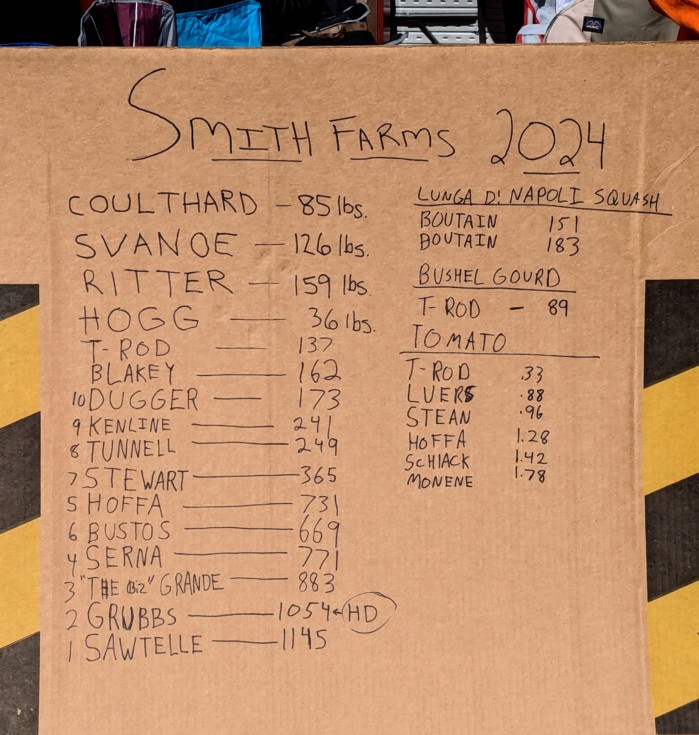 SMITH FARMS 2024
COULTHARD - 85 lbs.
SVANOE - 126 lbs.
RITTER - 159 lbs.
HOGG - 36 lbs.
T-ROD - 137
BLAKEY - 162
10 DUGGER - 173
9 KENLINE - 241
8 TUNNELL - 249
7 STEWART - 365
5 HOFFA - 731
6 BUSTOS - 669
4 SERNA - 771
3 "THE BIZ" GRANDE - 883
2 GRUBBS - 1054 ← HD
1 SAWTELLE - 1145
LUNGA D! NAPOLI SQUASH
BOUTAIN 151
BOUTAIN 183
BUSHEL GOURD
T-ROD - 89
TOMATO
T-ROD .33
LUERS .88
STEAN .96
HOFFA 1.28
SCHIACK 1.42
MONENE 1.78